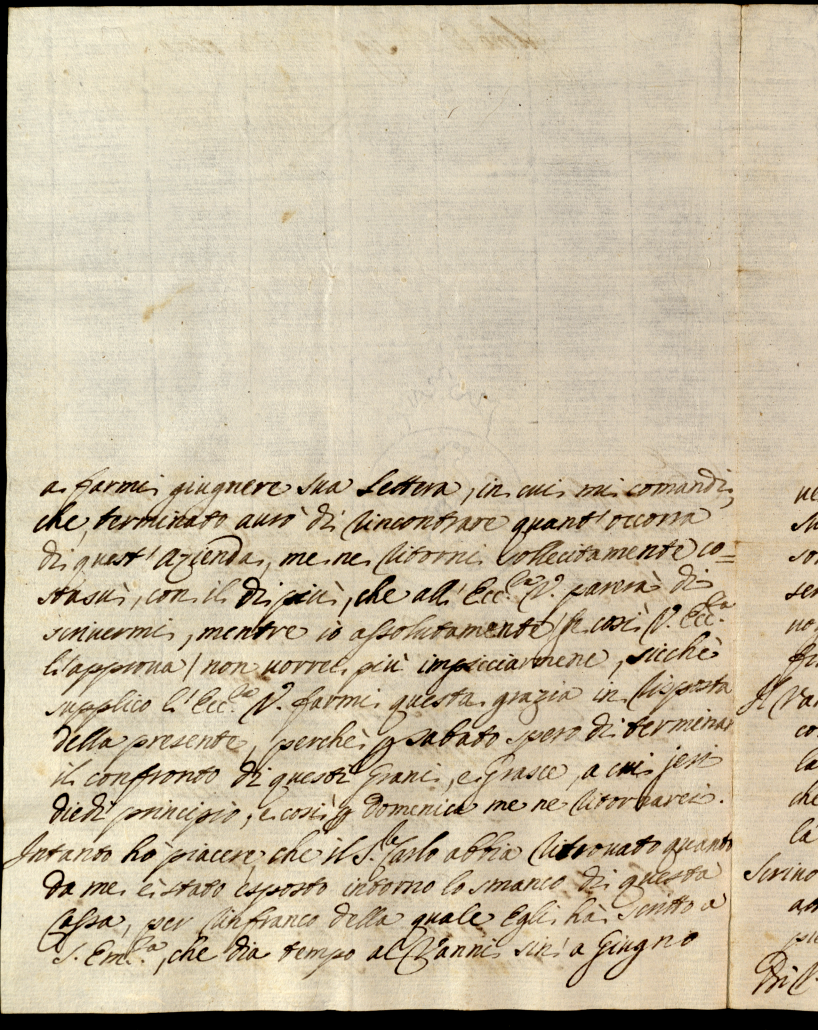 a farmi giugnere sua Lettera, in cui mi comandi,
che, terminato aurò di rincontrare quant'occorra
di quest'Azienda, me ne ritorni sollecitamente co=
stasù, con il di più, che all'Ecc.za V. parerà di
scriuermi, mentre io assolutamente (se così V. Ecc.za
l'approua) non uorrei più impicciarmene, sicchè
supplico l'Ecc.za V. farmi questa grazia in risposta
della presente, perchè p sabato spero di terminar
il confronto di questi Grani, e Grasce, a cui jeri
diedi principio, e così p Domenica me ne ritornarei.
Intanto hò piacere, che il S.r Carlo abbia ritrouato quanto
da me è stato esposto intorno lo smanco di questa
Cassa, per rinfranco della quale Egli hà scritto a
S. Em.za, che dia tempo al Vanni sin'a Giugno
ue
so
ser
uo
fr
Il Va
co
la
che
la
Scriuo
Di V.